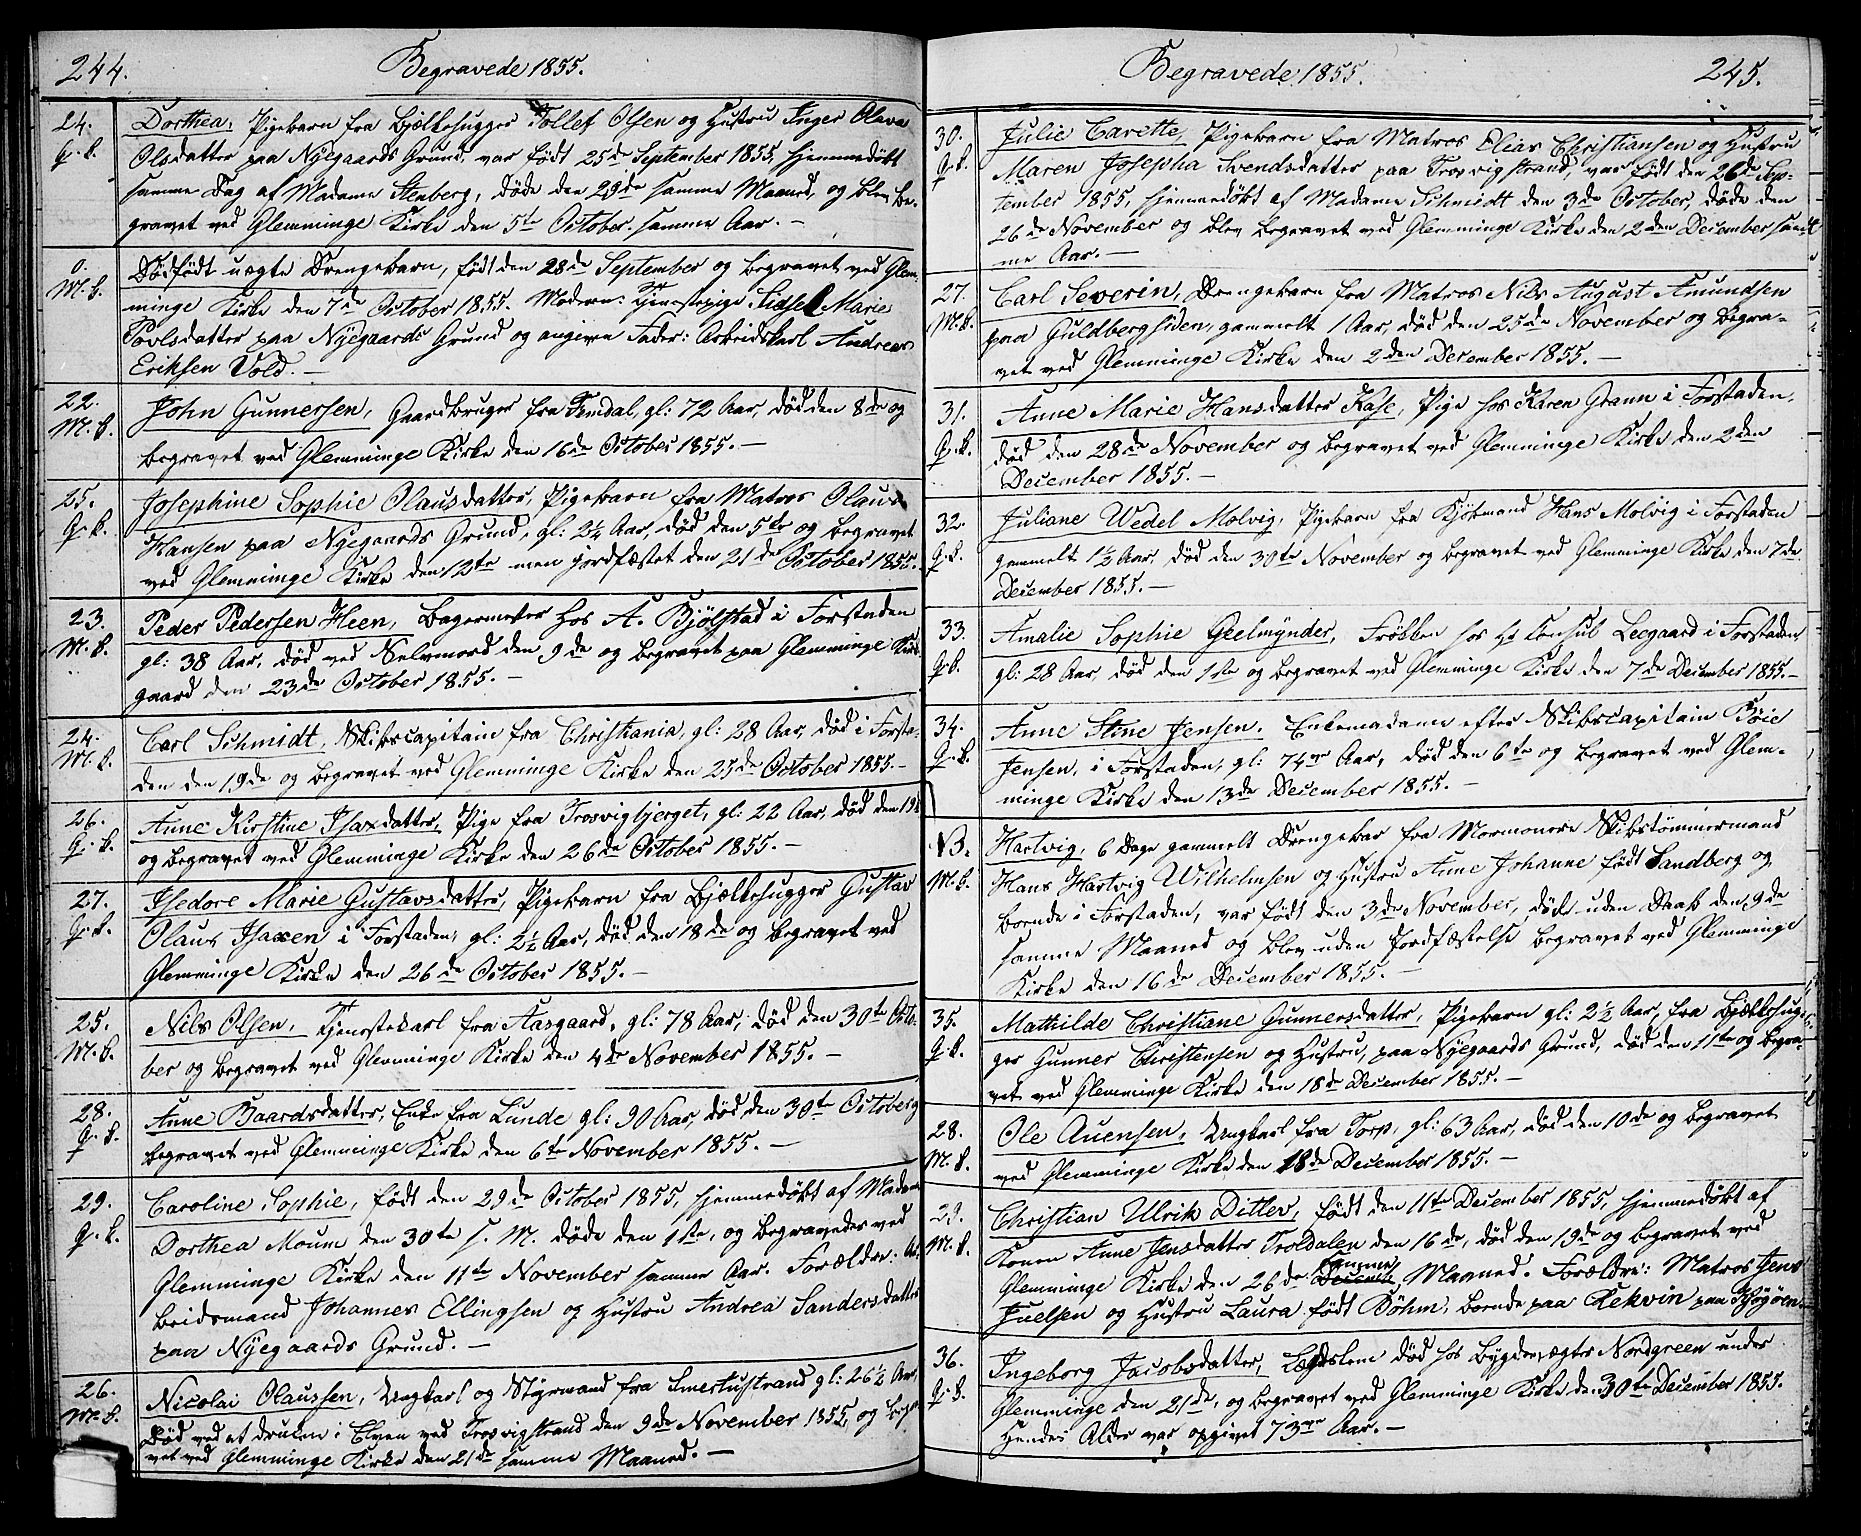 244.
Begravede 1855.
24.
Q. k.
Dorthea, Pigebarn fra Bjælkehugger Tollef Olsen og Hustru Inger Olava
Olsdatter paa Nyegaards Grund, var født 25de September 1855, hjemmedøbt
samme Dag af Madame Stenberg, døde den 29de samme Maaned, og blev be-
gravet ved Glemminge Kirke den 5te October samme Aar. —
0.
M. k.
Dødfødt uægte Drengebarn, født den 28de September og begravet ved Glem-
minge Kirke den 7de October 1855. Moderen: Tjenestepige Sidsel Marie
Povlsdatter paa Nyegaards Grund og angiven Fader: Arbeidskarl Andreas
Eriksen Vold. —
22.
M. k.
John Gunnersen, Gaardbruger fra Temdal, gl: 72 Aar, død den 8de og
begravet ved Glemminge Kirke den 16de October 1855. —
25.
Q. k.
Josephine Sophie Olausdatter, Pigebarn fra Matros Olaus
Hansen paa Nyegaards Grund, gl: 2¼ Aar, død den 5te og begravet
ved Glemminge Kirke den 12te men jordfæstet den 21de October 1855.
23.
M. k.
Peder Pedersen Heen, Bagermester hos A. Bjölstad i Forstaden
gl: 38 Aar, død ved Selvmord den 9de og begravet paa Glemminge Kirke-
gaard den 23de October 1855. —
24.
M. k.
Carl Schmidt, Skibscapitain fra Christiania, gl: 28 Aar, død i Forsta-
den den 19de og begravet ved Glemminge Kirke den 25de October 1855. —
26.
Q. k.
Anne Kirstine Isaxdatter, Pige fra Trosvigbjerget, gl: 22 Aar, død den 19de
og begravet ved Glemminge Kirke den 26de October 1855. —
27.
Q. k.
Isedore Marie Gustavsdatter, Pigebarn fra Bjælkehugger Gustav
Olaus Isaxen i Forstaden, gl: 2½ Aar, død den 18de og begravet ved
Glemminge Kirke den 26de October 1855. —
25.
M. k.
Nils Olsen, Tjenestekarl fra Aasgaard, gl: 78 Aar, død den 30te Octo-
ber og begravet ved Glemminge Kirke den 4de November 1855. —
28.
Q. k.
Anne Baardsdatter, Enke fra Lunde gl: 90 Aar, død den 30te October og
begravet ved Glemminge Kirke den 6te November 1855. —
29.
Q. k.
Caroline Sophie, født den 29de October 1855, hjemmedøbt af Madam
Dorthea Moum den 30te s. M. døde den 1ste, og begravedes ved
Glemminge Kirke den 11te November samme Aar. Forældre: Ar-
beidsmand Johannes Ellingsen og Hustru Andrea Sandersdatter
paa Nyegaards Grund. —
26.
M. k.
Nicolai Olaussen, Ungkarl og Styrmand fra Smertustrand gl: 26½ Aar,
død ved at drukne i Elven ved Trosvigstrand den 9de November 1855, og begra-
vet ved Glemminge Kirke den 21de samme Maaned. —
Begravede 1855.
245.
30.
Q. k.
Julie Carette, Pigebarn fra Matros Elias Christiansen og Hustru
Maren Josepha Svendsdatter paa Trosvigstrand, var født den 26de Sep-
tember 1855, hjemmedøbt af Madame Schmidt den 3de October, døde den
26de November og blev begravet ved Glemminge Kirke den 2den December sam-
me Aar. —
27.
M. k.
Carl Severin, Drengebarn fra Matros Nils August Amundsen
paa Guldbergsiden, gammelt 1 Aar, død den 25de November og begra-
vet ved Glemminge Kirke den 2den December 1855. —
31.
Q. k.
Anne Marie Hansdatter Kase, Pige hos Karen Grann i Forstaden,
død den 28de November og begravet ved Glemminge Kirke den 2den
December 1855. —
32.
Q. k.
Juliane Wedel Molvig, Pigebarn fra Kjøbmand Hans Molvig i Forstaden
gammelt 1½ Aar, død den 30te November og begravet ved Glemminge Kirke den 7de
December 1855. —
33.
Q. k.
Amalie Sophie Geelmÿnder, Frøken hos Hr Consul Leegaard i Forstaden,
gl: 28 Aar, død den 1ste og begravet ved Glemminge Kirke den 7de December 1855. —
34.
Q. k.
Anne Stine Jensen. Enkemadame efter Skibscapitain Böie
Jensen, i Forstaden, gl: 74 Aar, død den 6te og begravet ved Glem-
minge Kirke den 13de December 1855. —
NB.
M. k.
Hartvig, 6 Dage gammelt Drengebar fra Mormonere Skibstømmermand
Hans Hartvig Wilhelmsen og Hustru Anne Johanne født Sandberg og
boende i Forstaden, var født den 3de November, døde uden Daab den 9de
samme Maaned og blev uden Jordfæstelse begravet ved Glemminge
Kirke den 16de December 1855. —
35.
Q. k.
Mathilde Christiane Gunnersdatter, Pigebarn gl: 2½ Aar, fra Bjælkehug-
ger Gunner Christensen og Hustru, paa Nyegaards Grund, død den 11te og begra-
vet ved Glemminge Kirke den 18de December 1855. —
28.
M. k.
Ole Auensen, Ungkarl fra Torp, gl: 63 Aar, død den 10de og begravet
ved Glemminge Kirke den 18de December 1855. —
29.
M. k.
Christian Ulrik Ditlev, født den 11te December 1855, hjemmedøbt af
Konen Anne Jensdatter Troldalen den 16de, død den 19de og begravet ved
Glemminge Kirke den 26de samme Maaned. Forældre: Matros Jens
Juelsen og Hustru Laura født Böhm, boende paa Rekvin paa Kragöen.
36.
Q. k.
Ingeborg Jacobsdatter, Lægdslem død hos Bygdevægter Nordgreen under
Glemminge den 21de, og begravet ved Glemminge Kirke den 30te December 1855.
Hendes Alder var opgivet 73 Aar. —